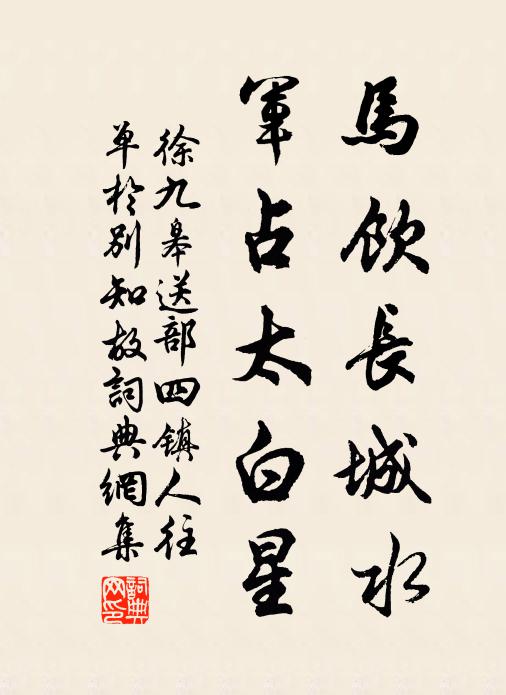 馬飲長城水
軍占太白星
徐九皋送部四鎮人往
单於別知故詞典網集
詞典網印